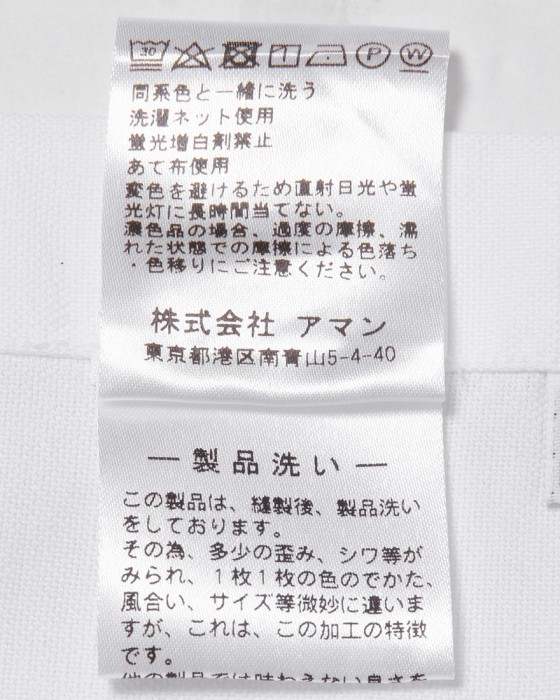 30 P W
同系色と一緒に洗う
洗濯ネット使用
蛍光増白剤禁止
あて布使用
変色を避けるため直射日光や蛍
光灯に長時間当てない。
濃色品の場合、過度の摩擦、濡
れた状態での摩擦による色落ち
・色移りにご注意ください。
株式会社 アマン
東京都港区南青山5-4-40
― 製品洗い ―
この製品は、縫製後、製品洗い
をしております。
その為、多少の歪み、シワ等が
みられ、1枚1枚の色のでかた、
風合い、サイズ等微妙に違いま
すが、これは、この加工の特徴
です。
他の製品では味わえない良さを